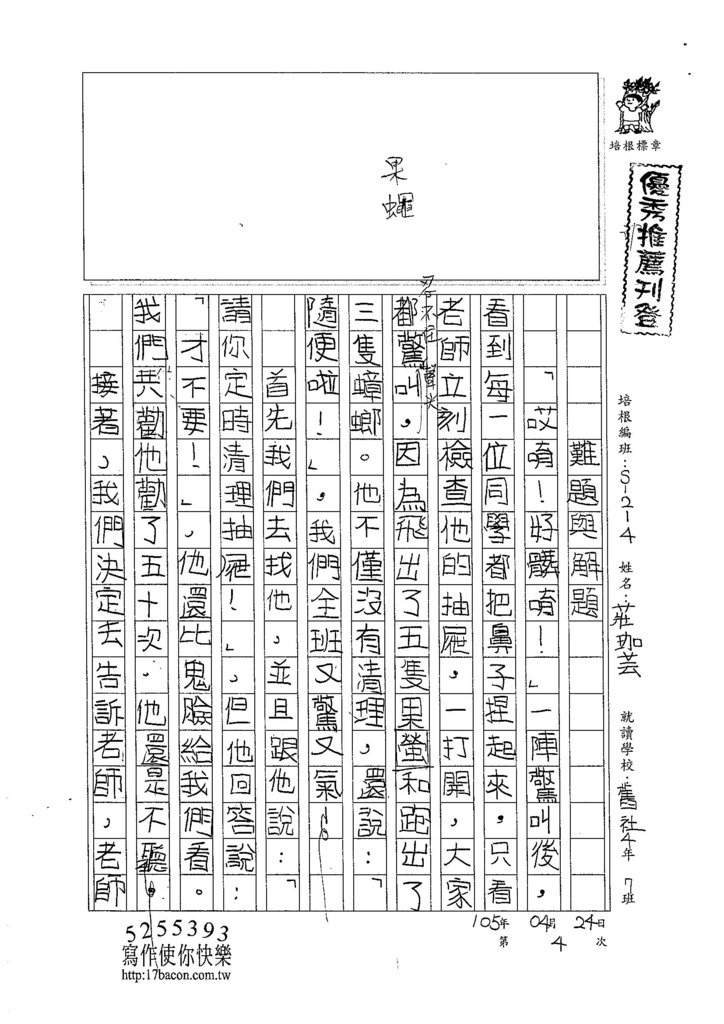 培根標章
優秀推薦刊登
培根編班：S-214 姓名：莊珈芸 就讀學校：舊社4年7班
105年04月24日
第4次
果蠅
難題與解題
「哎唷！好髒唷！」一陣驚叫後，
看到每一位同學都把鼻子捏起來，只看
老師立刻檢查他的抽屜，一打開，大家
都驚叫，因為飛出了五隻果螢和跑出了
忍不住聲尖
三隻蟑螂。他不僅沒有清理，還說：「
隨便啦！」，我們全班又驚又氣。
首先我們去找他，並且跟他說：「
請你定時清理抽屜！」，但他回答說：
「才不要！」，他還比鬼臉給我們看。
我們共勸他勸了五十次，他還是不聽。
接著，我們決定去告訴老師，老師
5255393
寫作使你快樂
http:17bacon.com.tw